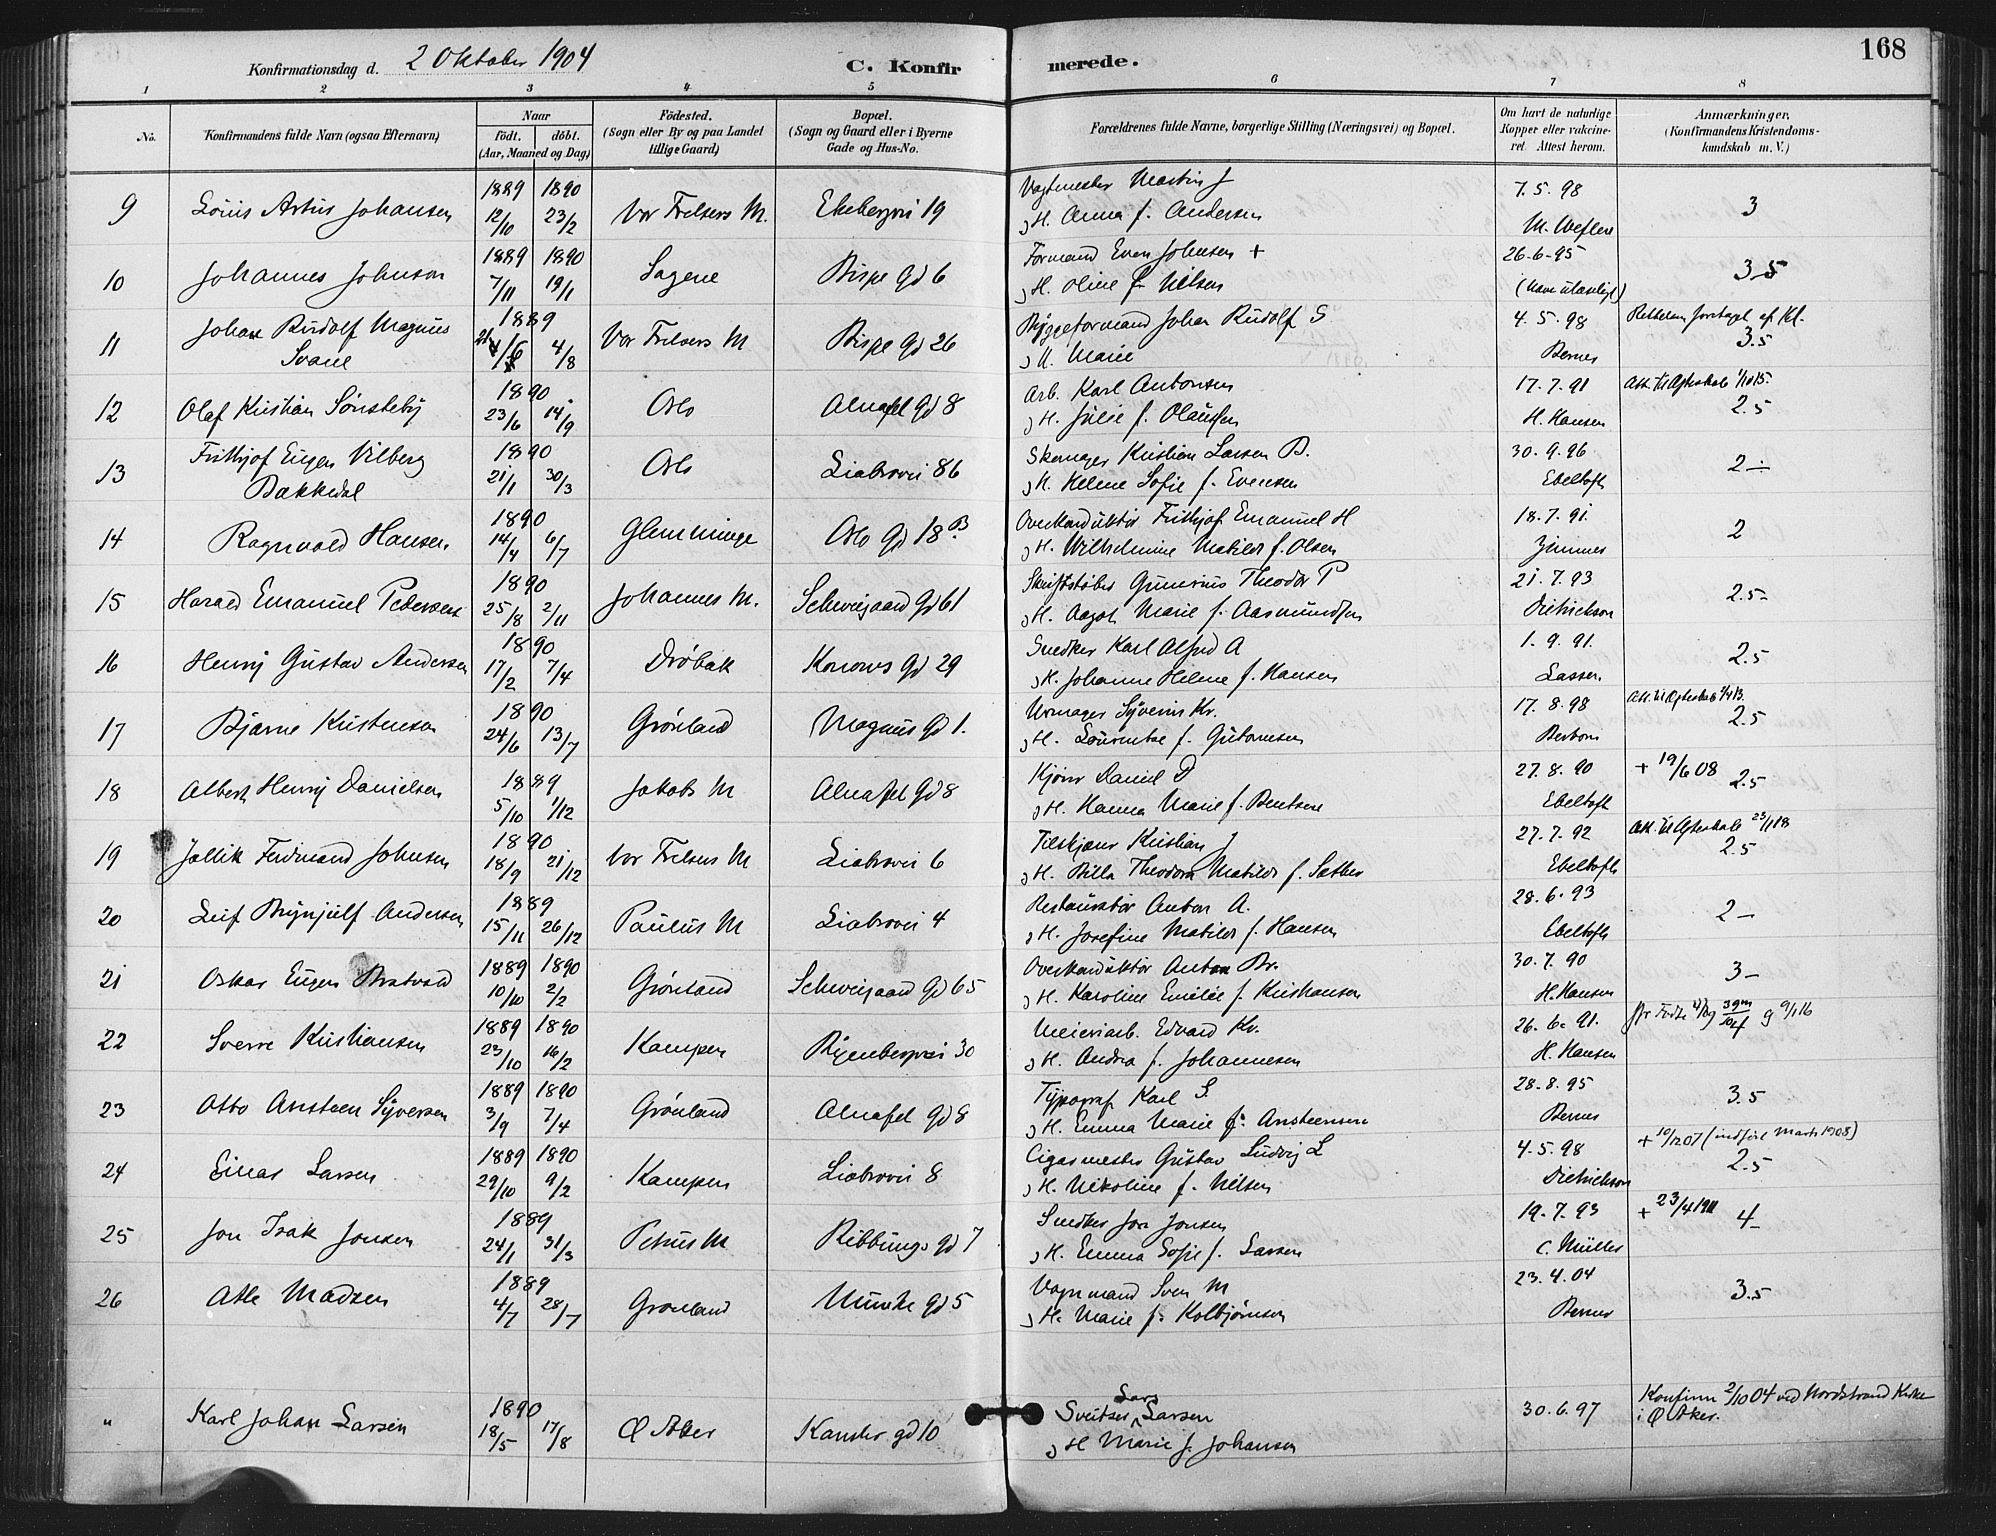 168
Konfirmationsdag d. 2 Oktober 1904
C. Konfirmerede.
1 2 3 4 5 6 7 8
No. Konfirmandens fulde Navn (ogsaa Efternavn) Naar Födt. döbt. (Aar, Maaned og Dag) Födested. (Sogn eller By og paa Landet tillige Gaard) Bopæl. (Sogn og Gaard eller i Byerne Gade og Hus-No. Forældrenes fulde Navne, borgerlige Stilling (Næringsvei) og Bopæl. Om havt de naturlige Kopper eller vakcineret. Attest herom. Anmærkninger, (Konfirmandens Kristendomskundskab m. V.)
9 Louis Artur Johansen 1889 12/10 1890 23/2 Vor Frelsers M. Ekebergvei 19 Vagtmester Martin J 7.5.98
H. Anna f. Andersen 3
10 Johannes Johnson 1889 7/11 1890 19/1 Sagene Bispe gd 6 Formand Even Johnsen + 26-6-95
H. Oline f. Nilsen (Navn ulæseligt) 3.5
11 Johan Rudolf Magnus Svane 1889 4/8 Vor Frelsers M Bispe gd 26 Byggeformand Johan Rudolf S 4.5.98
H. Marie Berner 3.5
12 Olaf Kristian Sønsteby 1890 23/6 14/9 Oslo Alnafet gd 8 Arb. Karl Antonsen 17.7.91
H. Julie f. Olausen H. Hansen 2.5
13 Frithjof Eugen Vilberg Bakkedal 1890 21/1 30/3 Oslo Liabrovei 86 Skomager Kristian Larsen B. 30.9.96
H. Helene Sofie f. Evensen Ebeltoft 2
14 Ragnvald Hansen. 1890 14/4 6/7 Glemminge Oslo gd 18 B. Overkonduktør Frithjof Emanuel H 18.7.91.
H. Wilhelmine Matilde f. Olsen Zimmer 2
15 Harald Emanuel Pedersen 1890 25/8 2/11 Johannes M. Schweigaard gd 61 Skriftstøber Gunerius Theodor P 21.7.93
H. Aagot Marie f. Aasmundsen Dietrichson 2.5
16 Henry Gustav Andersen 1890 17/2 7/4 Drøbak Konows gd 29 Snedker Karl Alfred A 1.9.91.
H. Johanne Helene f. Hansen Lassen. 2.5
17 Bjarne Kristensen 1890 24/6 13/7 Grønland Magnus gd 1. Urmager Syverin Kr. 17.8.98
H. f. 2.5
18 Albert Henry Danielsen 1889 5/10 1/12 Jakobs M Alnafet gd 8 Kjører Daniel D 27.8.90 + 19/6 08
H. Hanna Marie f. Bentsen Ebeltoft 2.5
19 Ferdinand Johnsen 1890 18/9 21/12 Vor Frelsers M Liabrovei 6 Kristian J 27.7.92
H. Theodora Matilde f. Ebeltoft 2.5
20 Leif Brynjulf Andersen 1889 15/11 26/12 Paulus M Liabrovei 4 Restauratør Anton A. 28.6.93
H. Josefine Matilde f. Hansen Ebeltoft 2
21 Oskar Eugen Bratvold 1889 10/10 1890 2/2 Grønland Schweigaard gd 65 Overkonduktør Anton Br. 30.7.90
H. Karoline Emilie f. Kristiansen H. Hansen 3
22 Sverre Kristiansen 1889 23/10 1890 16/2 Kampen Ryenbergvei 30 Meieriarb. Edvard Kr. 26.6.91.
H. Andrea f. Johannesen H. Hansen
23 Otto Ansteen Syversen 1889 3/9 1890 7/4 Grønland Alnafet gd 8 Typograf Karl S. 28.8.95
H. Emma Marie f. Ansteensen Berner 3.5
24 Einar Larsen 1889 29/10 1890 9/2 Kampen Liabrovei 8 Cigarmester Gustav Ludvig L 4.5.98 + 10/12 07 (indført Marts 1908)
H. Nikoline f. Nilsen Dietrichson 2.5
25 Jon Isak Jonsen 1889 24/1 31/3 Petrus M Ribbungs gd 7 Snedker Jon Jonsen 19.7.93 + 23/4 1911
H. Emma Sofie f. Larsen C. Müller 4
26 Atle Madsen 1889 4/7 28/7 Grønland Munke gd 5 Vognmand Sven M 23.4.04
H. Marie f. Kolbjørnsen Berner 3.5
" Karl Johan Larsen 1890 18/5 17/8 Ø Aker Kansler gd 10 Sveitser Lars Larsen 30.6.97 Konfirm 2/10 04 ved Nordstrand Kirke i Ø Aker.
H Marie f. Johansen